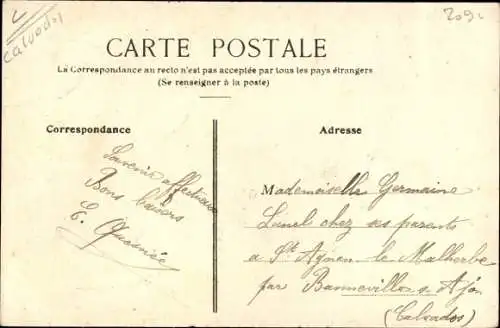 Calvados
209
CARTE POSTALE
La Correspondance au recto n'est pas acceptée par tous les pays étrangers
(Se renseigner à la poste)
Correspondance
Adresse
Souvenir affectueux
Bons baisers
E.
Mademoiselle Germaine
Lunel chez ses parents
à St Agnan le Malherbe
par Bannevilles Ajon
(Calvados)